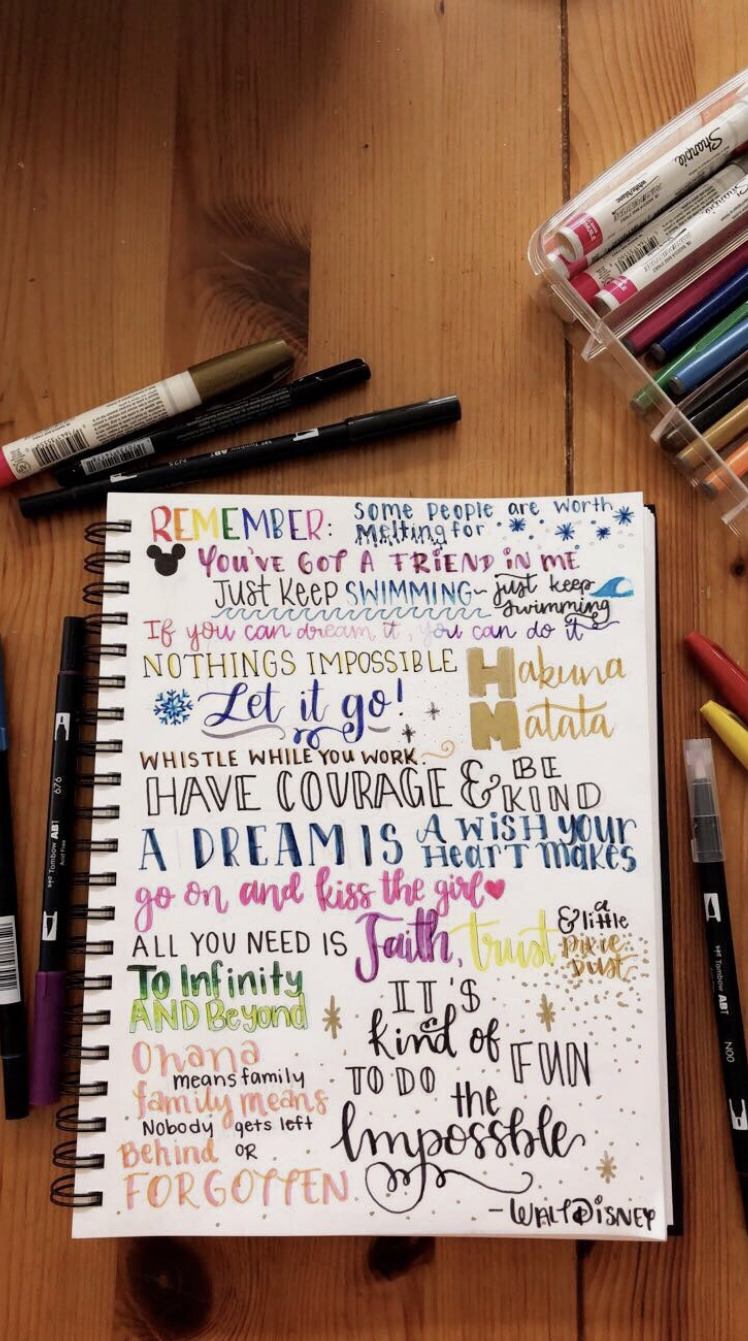 Sharpie
N25
Tombow ABT
REMEMBER: Some people are worth
Melting for
YOU'VE GOT A FRIEND IN ME
Just Keep SWIMMING~ just keep
swimming
If you can dream it, you can do it
NOTHINGS IMPOSSIBLE
Hakuna
Matata
Let it go!
WHISTLE WHILE YOU WORK.
HAVE COURAGE & BE
KIND
A DREAM IS A WISH YOUR
HEART MAKES
go on and kiss the girl
ALL YOU NEED IS Faith, trust & a little
Pixie
Dust
To Infinity
AND Beyond
IT'S
kind of FUN
TO DO the
Impossible
Ohana
means family
family means
Nobody gets left
Behind OR
FORGOTTEN
-WALT DISNEY
676
Tombow ABT
Acid Free
Tombow ABT
N00